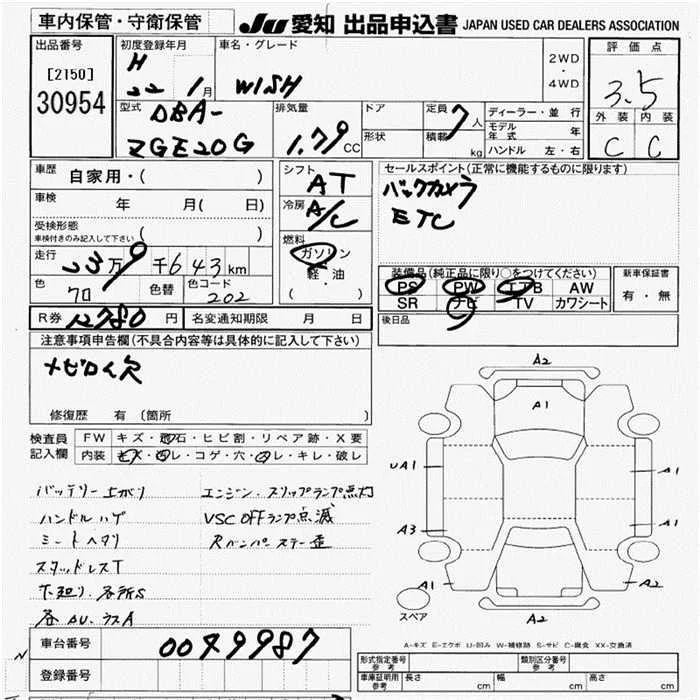 車内保管・守衛保管
JU 愛知 出品申込書 JAPAN USED CAR DEALERS ASSOCIATION
出品番号
[2150]
30954
初度登録年月
H
22 1月
車名・グレード
WISH
2WD
・
4WD
評価点
3.5
外装 内装
C C
型式
DBA-
ZGE20G
排気量
1.79cc
ドア
形状
定員 7人
積載 kg
ディーラー・並行
モデル年式 年
ハンドル 左・右
車歴
自家用・( )
車検
年 月( 日)
受検形態
車検付きのみ記入して下さい ( )
走行
23万9千643km
色
クロ
色替
色コード
202
シフト
AT
冷房
A/C
燃料
ガソリン
・
軽油
( )
セールスポイント(正常に機能するものに限ります)
バックカメラ
ETC
装備品(純正品に限り○をつけてください)
PS PW エアB AW
SR ナビ TV カワシート
新車保証書
有・無
R券 12780円
名変通知期限 月 日
後日品
注意事項申告欄(不具合内容等は具体的に記入して下さい)
メピロイ欠
修復歴 有(箇所
検査員
記入欄
FW キズ・飛石・ヒビ割・リペア跡・X要
内装 キズ・汚レ・コゲ・穴・スレ・キレ・破レ
バッテリー上がり
ハンドルハゲ
シートヘタリ
スタッドレスT
下廻り、各所S
各AU、ラスA
エンジン・スリップランプ点灯
VSC OFFランプ点滅
Rバンパーステー歪
A2
A1
UA1
A1
A3
A1
A1
A2
A2
スペア
A-キズ E-エクボ U-凹み W-補修跡 S-サビ C-腐食 XX-交換済
車台番号
0049987
登録番号
N
形式指定番号
参考
類別区分番号
参考
車庫証明用
参考
長さ cm
幅 cm
高さ cm